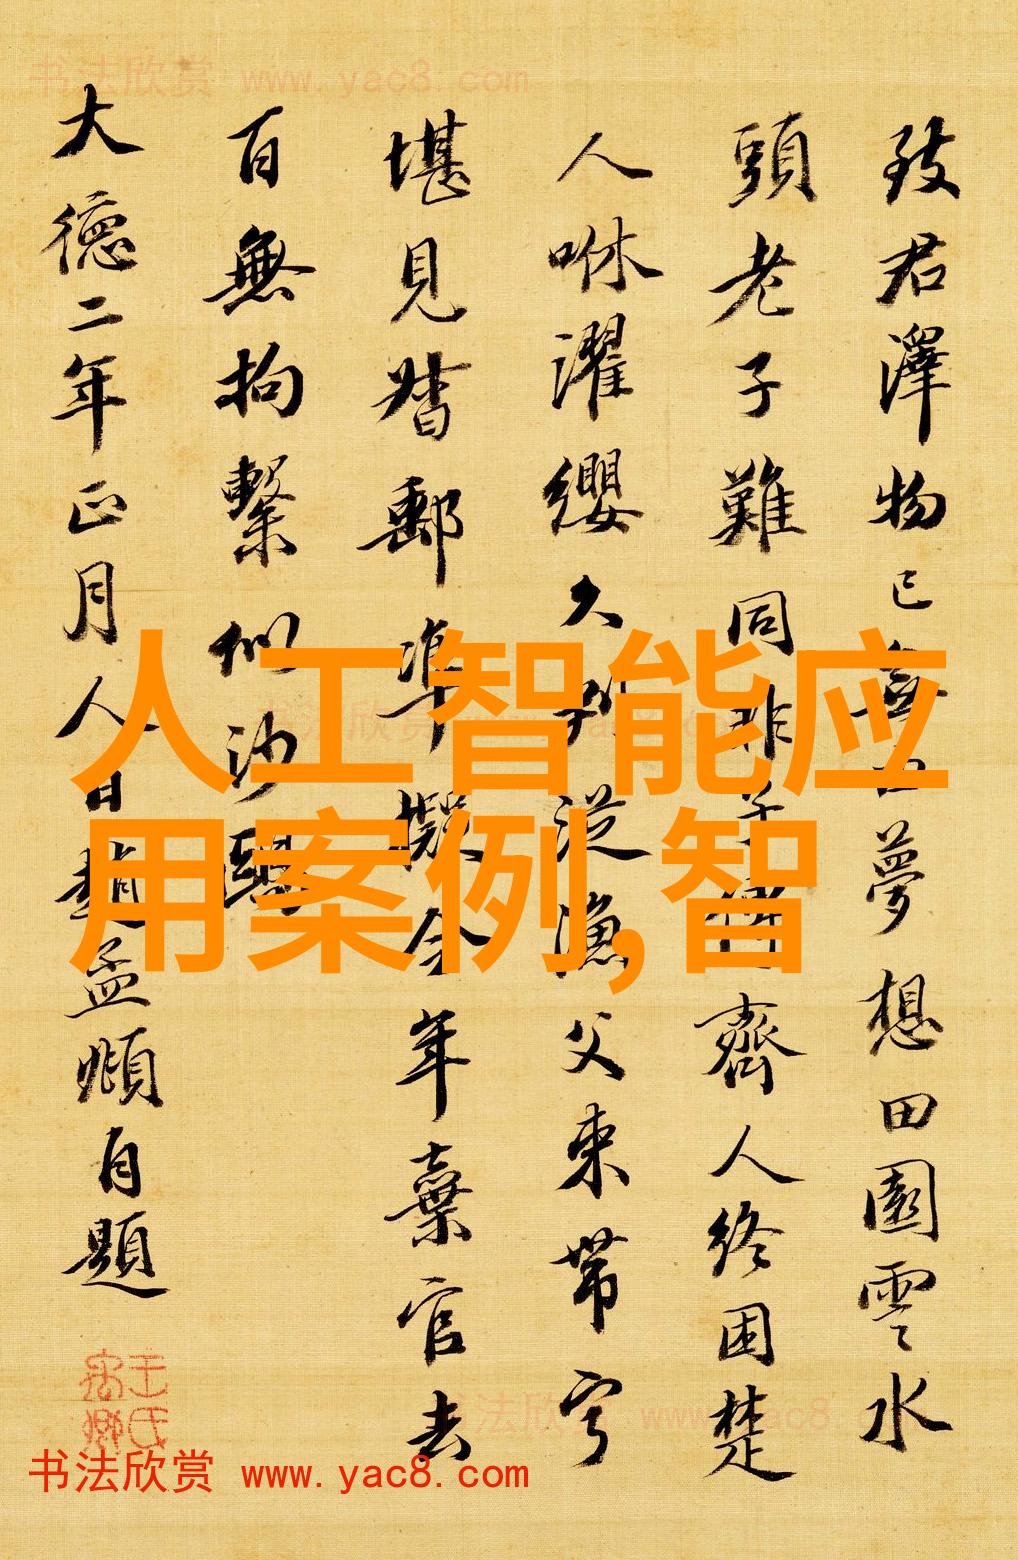 书法欣赏 www.yac8.com
致君澤物已無由夢想田園雲水
頭老子難同非子傳齊人終困楚
人咻濯纓久判從漁父束帶寧
堪見督郵準擬今年棄官去
百無拘繫似沙鷗
大德二年正月人日趙孟頫自題
人工智能应
用案例,智
书法欣赏 www.yac8.com
书法欣赏 www.yac8.com
书法欣赏 www.yac8.com